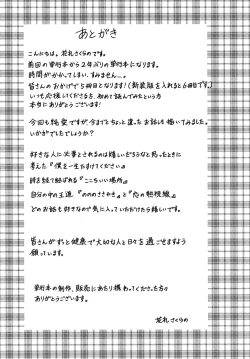 あとがき
こんにちは。花礼さくらのです。
前回の単行本から2年ぶりの単行本になります。
時間がかかってしまい、すみません…。
皆さんのおかげで5冊目となります！（新装版を入れると6冊目です。）
いつも応援いただける方、初めて読んでみたという方
本当にありがとうございます！
今回も純愛ですが今までとちょっと違ったお話も描いてみました。
いかがでしたでしょうか？
好きな人に必要とされるのは嬉しいだろうなと思ったときに
考えた『僕を一生たすけてください』
時を経て結ばれる『ここちいい場所』
自分の中の王道『ののさきやき』と『恋の勉強編』
どのお話も好きなので気に入っていただけたら嬉しいです。
皆さんがずっと健康で大切な人と日々を過ごせますよう
願っています。
単行本の制作、販売にあたり携わってくださった方々
ありがとうございます。
花礼さくらの